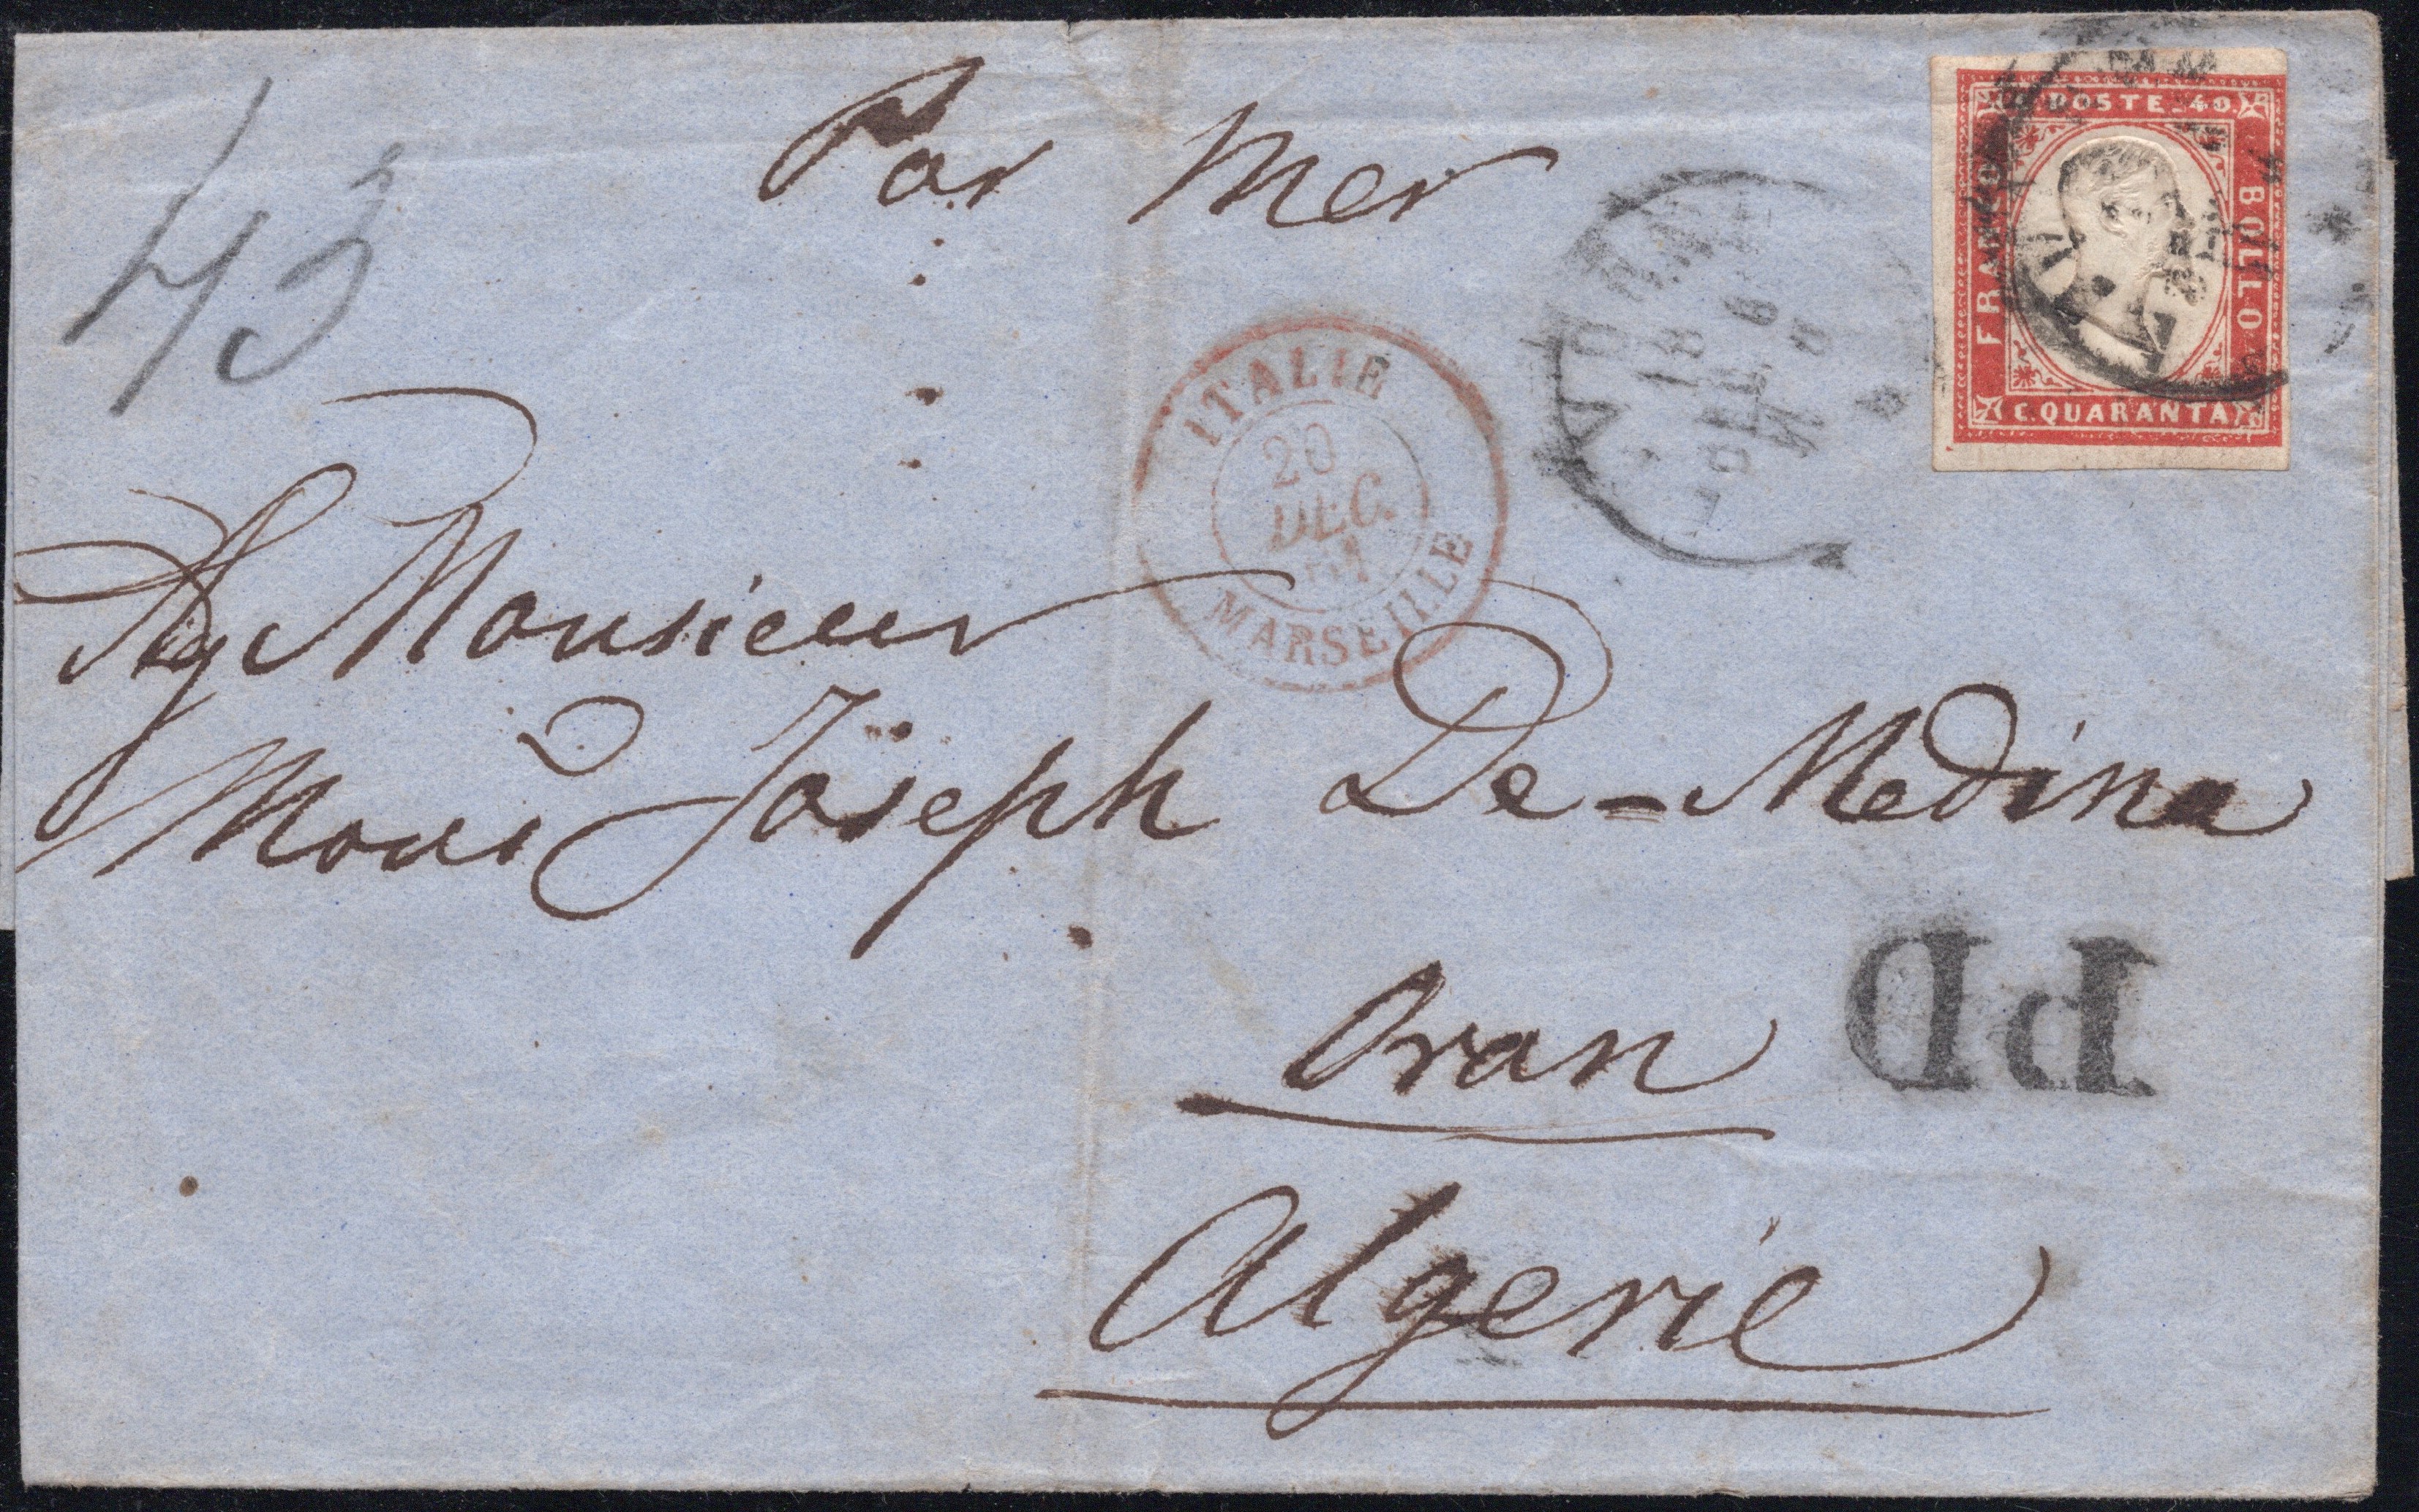 Par Mer
43
POSTE 40
FRANCO
BOLLO
C. QUARANTA
LIVORNO
18 DIC 61
ITALIE
20
DEC.
61
MARSEILLE
A Monsieur
Monsr Joseph De-Medina
PD
Oran
Algerie